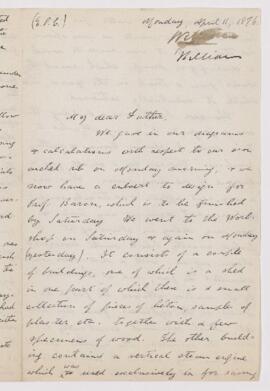 (E.P.C.)
Monday April 11, 1876
William
My dear Father,
We gave in our diagrams
& calculations with respect to our iron
arched rib on Monday morning, & we
now have a culvert to design for
Prof. Baron, which is to be finished
by Saturday. We went to the Work-
shop on Saturday & again on Monday
(yesterday). It consists of a couple
of buildings, one of which is a shed
in one part of which there is a small
collection of pieces of beton, samples of
plaster etc. together with a few
specimens of wood. The other build-
ing contains a vertical steam engine
which was used exclusively in for sawing